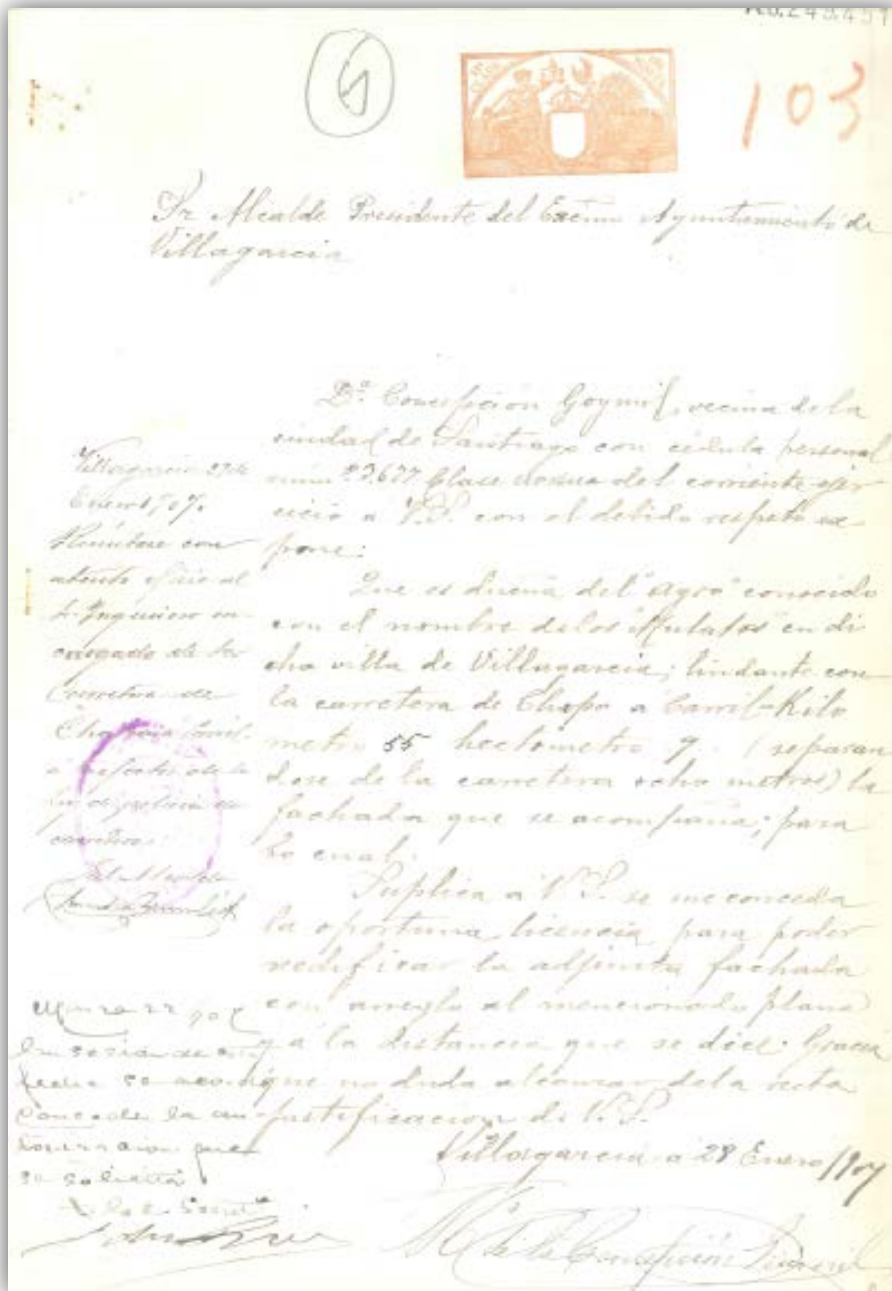 103
Sr Alcalde Presidente del Excmo Ayuntamiento de
Villagarcia
Dª. Concepcion Goymil, vecina de la
ciudad de Santiago con cédula personal
núm.º 3.677 Clase novena del corriente ejer
cicio a V.S. con el debido respeto ex
pone:
Que es dueña del "agro" conocido
con el nombre de los "Mulatos" en di
cha villa de Villagarcia; lindante con
la carretera de Chapa a Carril-Kilo
metro 55 hectómetro 9 (separan
dose de la carretera ocho metros) la
fachada que se acompaña; para
lo cual.
Suplica a V.S. se me conceda
la oportuna licencia para poder
redificar la adjunta fachada
con arreglo al mencionado plano
y a la distancia que se dice. Gracia
que no duda alcanzar de la recta
justificacion de V.S.
Villagarcia a 28 Enero /907
Mª de la Concepción
Villagarcia de
Enero 1907.
Remítase con
atento oficio al
Sr Ingeniero en
cargado de la
Carretera de
Chapa a Carril
a efectos de la
ley de policia de
carreteras.
El Alcalde
Marzo 22 907
En sesion de esta
fecha se acordó
conceder la au
torizacion que
se solicita